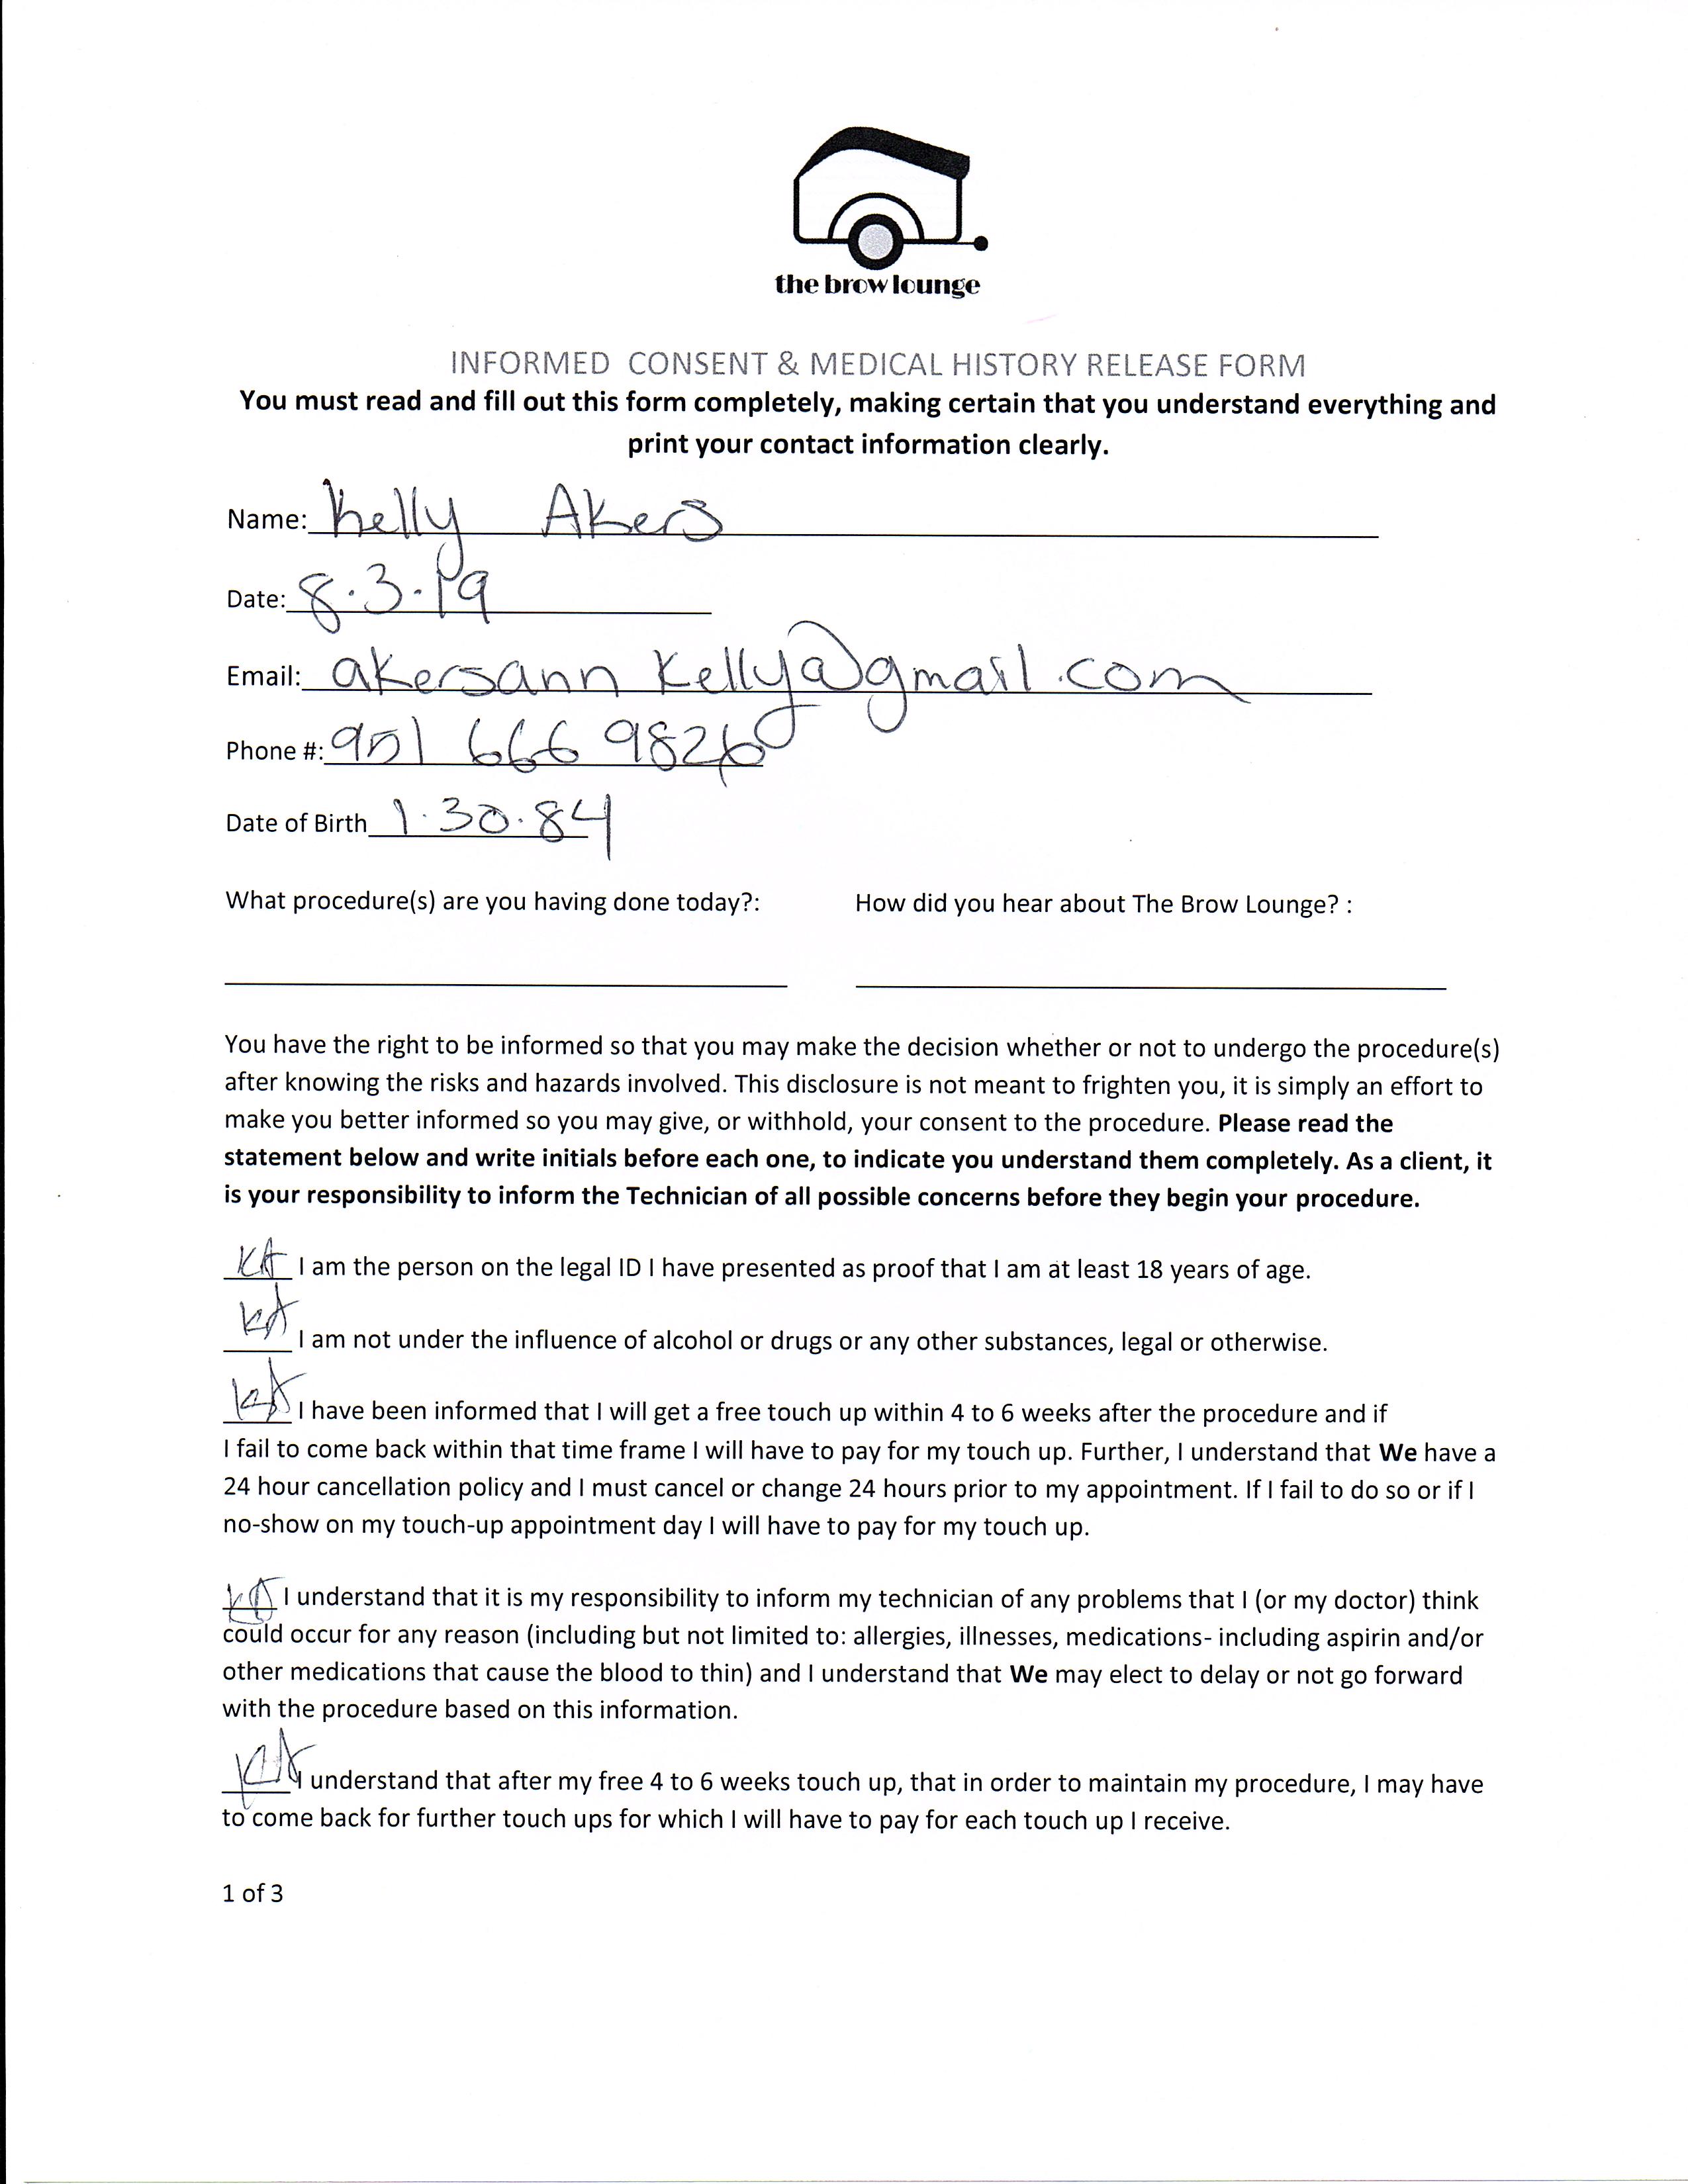 the brow lounge
INFORMED CONSENT & MEDICAL HISTORY RELEASE FORM
You must read and fill out this form completely, making certain that you understand everything and
print your contact information clearly.
Name: Kelly Akers
Date: 8.3.19
Email: akersann Kelly@gmail.com
Phone #: 951 666 9826
Date of Birth 1.30.84
What procedure(s) are you having done today?: How did you hear about The Brow Lounge? :
You have the right to be informed so that you may make the decision whether or not to undergo the procedure(s)
after knowing the risks and hazards involved. This disclosure is not meant to frighten you, it is simply an effort to
make you better informed so you may give, or withhold, your consent to the procedure. Please read the
statement below and write initials before each one, to indicate you understand them completely. As a client, it
is your responsibility to inform the Technician of all possible concerns before they begin your procedure.
KA I am the person on the legal ID I have presented as proof that I am at least 18 years of age.
KA I am not under the influence of alcohol or drugs or any other substances, legal or otherwise.
KA I have been informed that I will get a free touch up within 4 to 6 weeks after the procedure and if
I fail to come back within that time frame I will have to pay for my touch up. Further, I understand that We have a
24 hour cancellation policy and I must cancel or change 24 hours prior to my appointment. If I fail to do so or if I
no-show on my touch-up appointment day I will have to pay for my touch up.
KA I understand that it is my responsibility to inform my technician of any problems that I (or my doctor) think
could occur for any reason (including but not limited to: allergies, illnesses, medications- including aspirin and/or
other medications that cause the blood to thin) and I understand that We may elect to delay or not go forward
with the procedure based on this information.
KA I understand that after my free 4 to 6 weeks touch up, that in order to maintain my procedure, I may have
to come back for further touch ups for which I will have to pay for each touch up I receive.
1 of 3